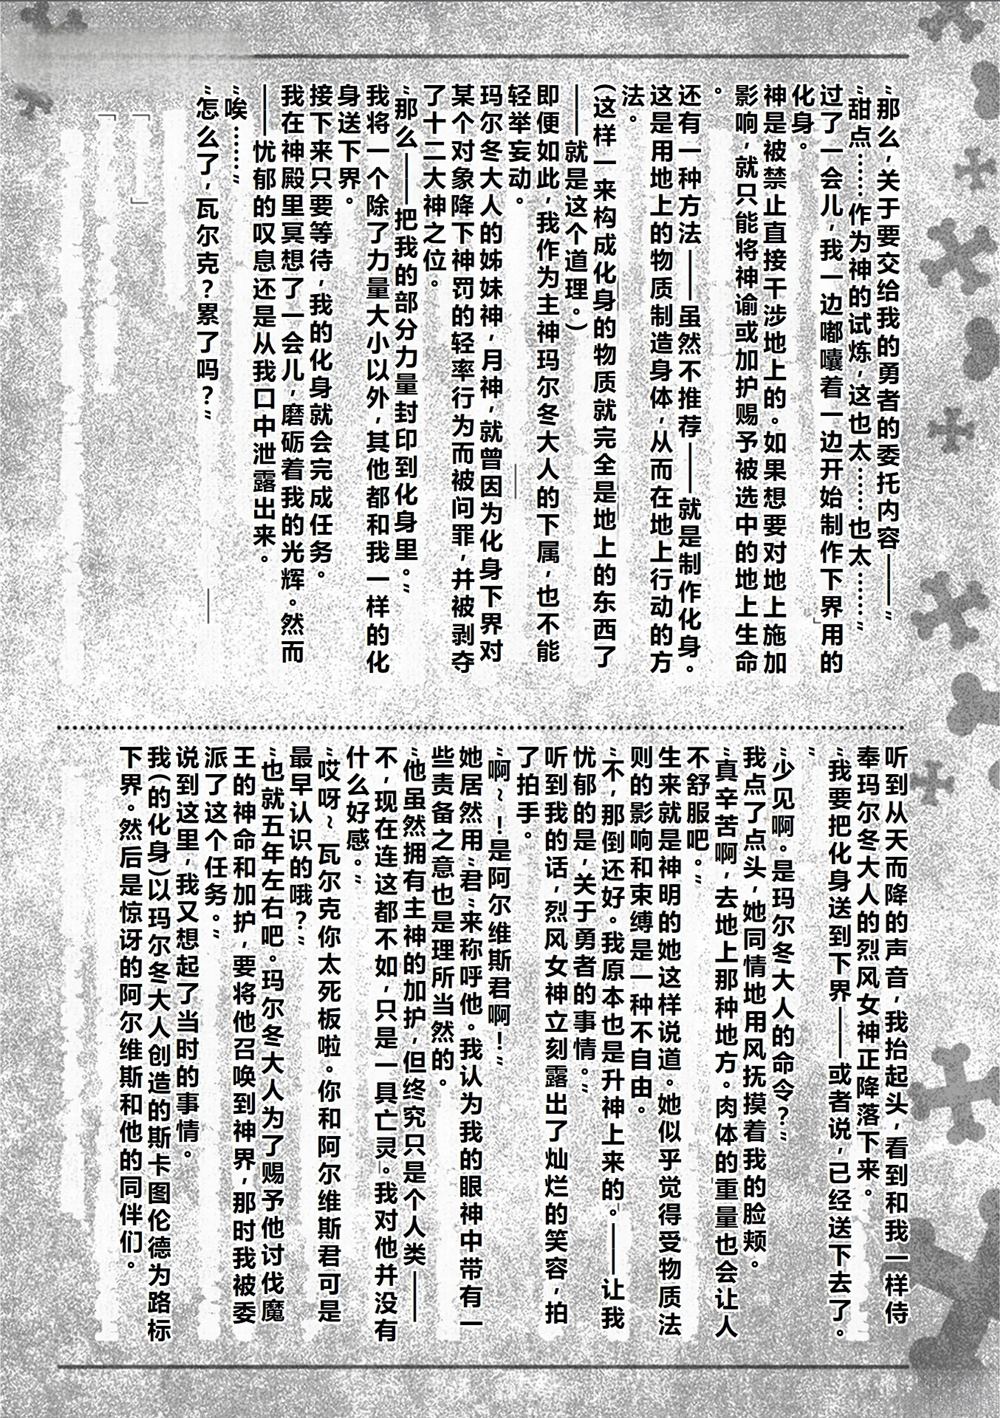 “那么，关于要交给我的勇者的委托内容——”
“甜点……作为神的试炼，这也太……也太……”
过了一会儿，我一边嘟囔着一边开始制作下界用的
化身。
神是被禁止直接干涉地上的。如果想要对地上施加
影响，就只能将神谕或加护赐予被选中的地上生命
。
还有一种方法——虽然不推荐——就是制作化身。
这是用地上的物质制造身体，从而在地上行动的方
法。
（这样一来构成化身的物质就完全是地上的东西了
——就是这个道理。）
即便如此，我作为主神玛尔冬大人的下属，也不能
轻举妄动。
玛尔冬大人的姊妹神，月神，就曾因为化身下界对
某个对象降下神罚的轻率行为而被问罪，并被剥夺
了十二大神之位。
“那么——把我的部分力量封印到化身里。”
我将一个除了力量大小以外，其他都和我一样的化
身送下界。
接下来只要等待，我的化身就会完成任务。
我在神殿里冥想了一会儿，磨砺着我的光辉。然而
——忧郁的叹息还是从我口中泄露出来。
“唉……”
“怎么了，瓦尔克？累了吗？”
听到从天而降的声音，我抬起头，看到和我一样侍
奉玛尔冬大人的烈风女神正降落下来。
“我要把化身送到下界——或者说，已经送下去了。
”
“少见啊。是玛尔冬大人的命令？”
我点了点头，她同情地用风抚摸着我的脸颊。
“真辛苦啊，去地上那种地方。肉体的重量也会让人
不舒服吧。”
生来就是神明的她这样说道。她似乎觉得受物质法
则的影响和束缚是一种不自由。
“不，那倒还好。我原本也是升神上来的。——让我
忧郁的是，关于勇者的事情。”
听到我的话，烈风女神立刻露出了灿烂的笑容，拍
了拍手。
“啊~！是阿尔维斯君啊！”
她居然用“君”来称呼他。我认为我的眼神中带有一
些责备之意也是理所当然的。
“他虽然拥有主神的加护，但终究只是个人类——
不，现在连这都不如，只是一具亡灵。我对他并没有
什么好感。”
“哎呀~瓦尔克你太死板啦。你和阿尔维斯君可是
最早认识的哦？”
“也就五年左右吧。玛尔冬大人为了赐予他讨伐魔
王的神命和加护，要将他召唤到神界，那时我被委
派了这个任务。”
说到这里，我又想起了当时的事情。
我（的化身）以玛尔冬大人创造的斯卡图伦德为路标
下界。然后是惊讶的阿尔维斯和他的同伴们。